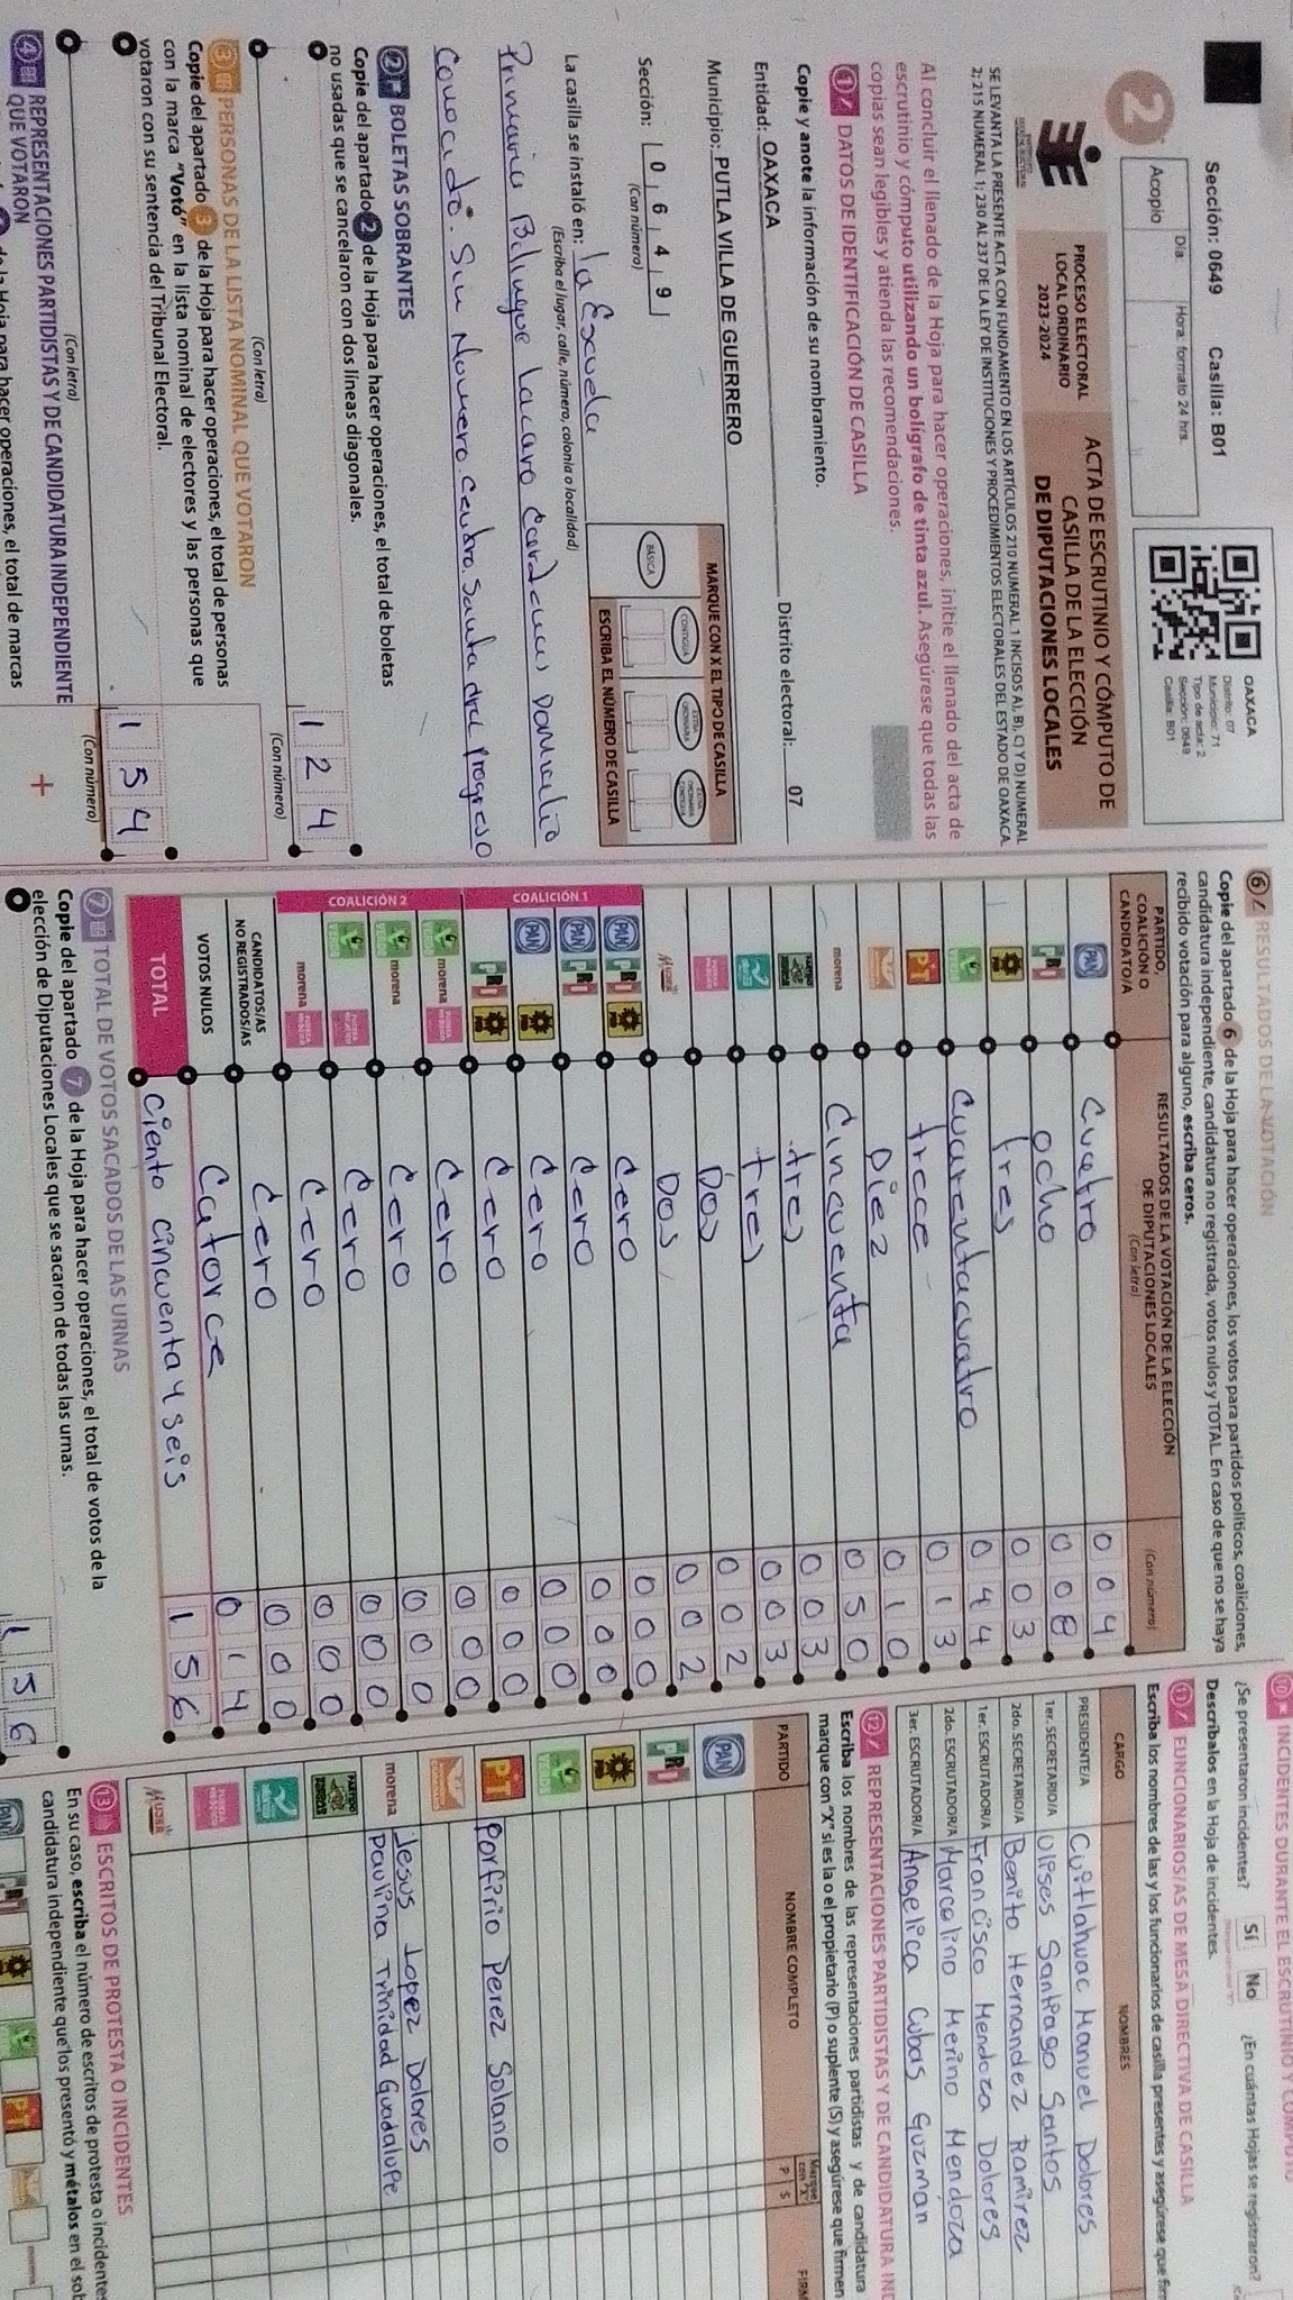 Sección: 0649 Casilla: B01
Día: Hora: formato 24 hrs.
Acopio
2
OAXACA
Distrito: 07
Municipio: 71
Tipo de acta: 2
Sección: 0649
Casilla: B01
PROCESO ELECTORAL
LOCAL ORDINARIO
2023-2024
ACTA DE ESCRUTINIO Y CÓMPUTO DE
CASILLA DE LA ELECCIÓN
DE DIPUTACIONES LOCALES
SE LEVANTA LA PRESENTE ACTA CON FUNDAMENTO EN LOS ARTÍCULOS 210 NUMERAL 1 INCISOS A), B), C) Y D) NUMERAL
2; 215 NUMERAL 1; 230 AL 237 DE LA LEY DE INSTITUCIONES Y PROCEDIMIENTOS ELECTORALES DEL ESTADO DE OAXACA.
Al concluir el llenado de la Hoja para hacer operaciones, inicie el llenado del acta de
escrutinio y cómputo utilizando un bolígrafo de tinta azul. Asegúrese que todas las
copias sean legibles y atienda las recomendaciones.
1 DATOS DE IDENTIFICACIÓN DE CASILLA
Copie y anote la información de su nombramiento.
Entidad: OAXACA Distrito electoral: 07
Municipio: PUTLA VILLA DE GUERRERO
Sección: 0 6 4 9
(Con número)
MARQUE CON X EL TIPO DE CASILLA
BÁSICA CONTIGUA
ESCRIBA EL NÚMERO DE CASILLA
La casilla se instaló en: la Escuela
(Escriba el lugar, calle, número, colonia o localidad)
Primaria Bilingue Lacaro Cardenas Domicilio
Conocido. Sin Numero. Centro. Santa del Progreso
2 BOLETAS SOBRANTES
Copie del apartado 2 de la Hoja para hacer operaciones, el total de boletas
no usadas que se cancelaron con dos líneas diagonales.
1 2 4
(Con letra) (Con número)
3 PERSONAS DE LA LISTA NOMINAL QUE VOTARON
Copie del apartado 3 de la Hoja para hacer operaciones, el total de personas
con la marca "Votó" en la lista nominal de electores y las personas que
votaron con su sentencia del Tribunal Electoral.
1 5 4
(Con letra) (Con número)
4 REPRESENTACIONES PARTIDISTAS Y DE CANDIDATURA INDEPENDIENTE
QUE VOTARON +
de la Hoja para hacer operaciones, el total de marcas
6 RESULTADOS DE LA VOTACIÓN
Copie del apartado 6 de la Hoja para hacer operaciones, los votos para partidos políticos, coaliciones,
candidatura independiente, candidatura no registrada, votos nulos y TOTAL. En caso de que no se haya
recibido votación para alguno, escriba ceros.
PARTIDO,
COALICIÓN O
CANDIDATO/A
RESULTADOS DE LA VOTACIÓN DE LA ELECCIÓN
DE DIPUTACIONES LOCALES
(Con letra)
(Con número)
PAN cuatro 0 0 4
PRI ocho 0 0 8
PRD tres 0 0 3
VERDE cuarentacuatro 0 4 4
PT trece 0 1 3
Diez 0 1 0
morena cincuenta 0 5 0
tres 0 0 3
tres 0 0 3
Dos 0 0 2
Dos 0 0 2
COALICIÓN 1
PAN PRI PRD cero 0 0 0
PAN PRI cero 0 0 0
PAN PRD cero 0 0 0
PRI PRD cero 0 0 0
COALICIÓN 2
VERDE morena cero 0 0 0
VERDE morena cero 0 0 0
VERDE cero 0 0 0
morena cero 0 0 0
CANDIDATOS/AS
NO REGISTRADOS/AS cero 0 0 0
VOTOS NULOS Catorce 0 1 4
TOTAL ciento cincuenta y seis 1 5 6
7 TOTAL DE VOTOS SACADOS DE LAS URNAS
Copie del apartado 7 de la Hoja para hacer operaciones, el total de votos de la
elección de Diputaciones Locales que se sacaron de todas las urnas.
1 5 6
10 INCIDENTES DURANTE EL ESCRUTINIO Y CÓMPUTO
¿Se presentaron incidentes? Sí No ¿En cuántas Hojas se registraron?
Descríbalos en la Hoja de incidentes.
11 FUNCIONARIOS/AS DE MESA DIRECTIVA DE CASILLA
Escriba los nombres de las y los funcionarios de casilla presentes y asegúrese que
CARGO NOMBRES
PRESIDENTE/A Cuitlahuac Manuel Dolores
1er. SECRETARIO/A Ulises Santiago Santos
2do. SECRETARIO/A Benito Hernandez Ramirez
1er. ESCRUTADOR/A Francisco Mendoza Dolores
2do. ESCRUTADOR/A Marcelino Merino Mendoza
3er. ESCRUTADOR/A Angelica Cubas Guzmán
12 REPRESENTACIONES PARTIDISTAS Y DE CANDIDATURA
Escriba los nombres de las representaciones partidistas y de candidatura
marque con "X" si es la o el propietario (P) o suplente (S) y asegúrese que firmen
PARTIDO NOMBRE COMPLETO Marque con "X" P S
PAN
PRI
PRD
VERDE
PT Porfirio Perez Solano
morena Jesus Lopez Dolores
Paulina Trinidad Guadalupe
13 ESCRITOS DE PROTESTA O INCIDENTES
En su caso, escriba el número de escritos de protesta o incidentes
candidatura independiente que los presentó y métalos en el
PAN PRI PT